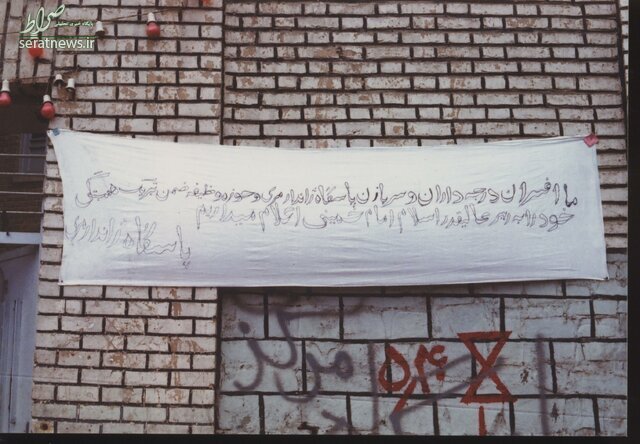 صراط
پایگاه خبری تحلیلی
seratnews.ir
ما افسران درجه داران و سربازان پاسگاه ژاندارمری و حوزه وظیفه ضمن تبریک همبستگی
خود را به رهبر عالیقدر اسلام امام خمینی اعلام میداریم
پاسگاه ژاندارمری
مرکز